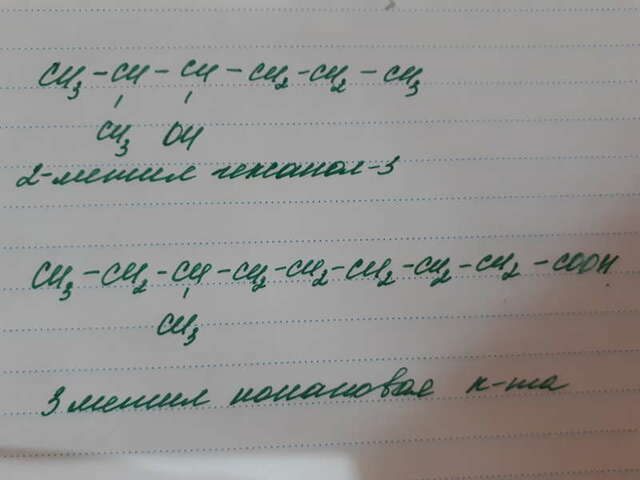 CH₃-CH-CH-CH₂-CH₂-CH₃
CH₃ OH
2-метил гексанол-3
CH₃-CH₂-CH-CH₂-CH₂-CH₂-CH₂-CH₂-COOH
CH₃
3 метил нонановая к-та